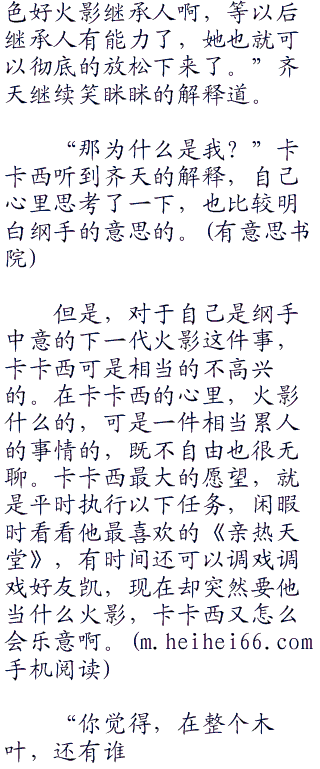 色好火影继承人啊，等以后
继承人有能力了，她也就可
以彻底的放松下来了。”齐
天继续笑眯眯的解释道。
“那为什么是我？”卡
卡西听到齐天的解释，自己
心里思考了一下，也比较明
白纲手的意思的。(有意思书
院)
但是，对于自己是纲手
中意的下一代火影这件事，
卡卡西可是相当的不高兴
的。在卡卡西的心里，火影
什么的，可是一件相当累人
的事情的，既不自由也很无
聊。卡卡西最大的愿望，就
是平时执行以下任务，闲暇
时看看他最喜欢的《亲热天
堂》，有时间还可以调戏调
戏好友凯，现在却突然要他
当什么火影，卡卡西又怎么
会乐意啊。(m.heihei66.com
手机阅读)
“你觉得，在整个木
叶，还有谁